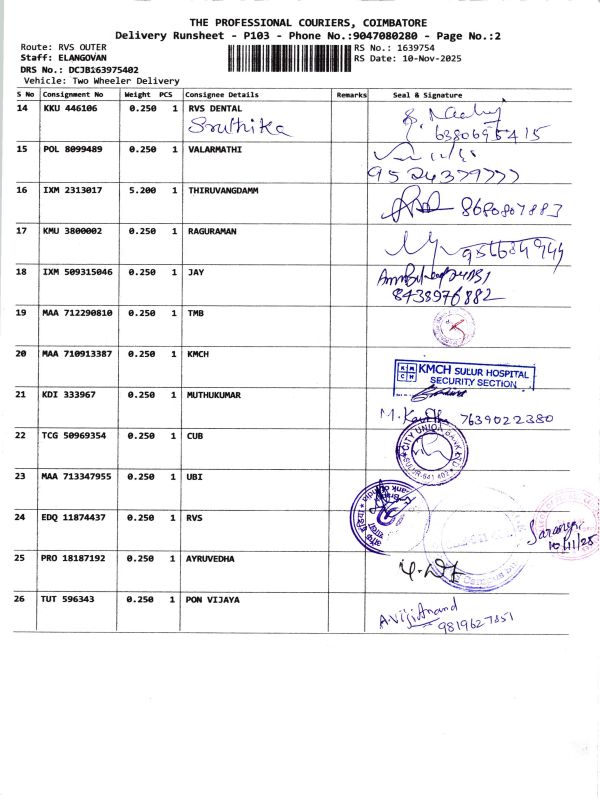 THE PROFESSIONAL COURIERS, COIMBATORE
Delivery Runsheet - P103 - Phone No.:9047080280 - Page No.:2
Route: RVS OUTER RS No.: 1639754
Staff: ELANGOVAN RS Date: 10-Nov-2025
DRS No.: DCJB163975402
Vehicle: Two Wheeler Delivery
S No Consignment No Weight PCS Consignee Details Remarks Seal & Signature
14 KKU 446106 0.250 1 RVS DENTAL
Sruthika
15 POL 8099489 0.250 1 VALARMATHI
9524379777
16 IXM 2313017 5.200 1 THIRUVANGDAMM
8680807883
17 KMU 3800002 0.250 1 RAGURAMAN
18 IXM 509315046 0.250 1 JAY
8438976882
19 MAA 712290810 0.250 1 TMB
20 MAA 710913387 0.250 1 KMCH
KMCH SULUR HOSPITAL
SECURITY SECTION
21 KDI 333967 0.250 1 MUTHUKUMAR
7639022380
22 TCG 50969354 0.250 1 CUB
CITY UNION BANK LTD
SULUR-641 402
23 MAA 713347955 0.250 1 UBI
24 EDQ 11874437 0.250 1 RVS
10/11/25
25 PRO 18187192 0.250 1 AYRUVEDHA
26 TUT 596343 0.250 1 PON VIJAYA
A.Viji Anand
9819627851